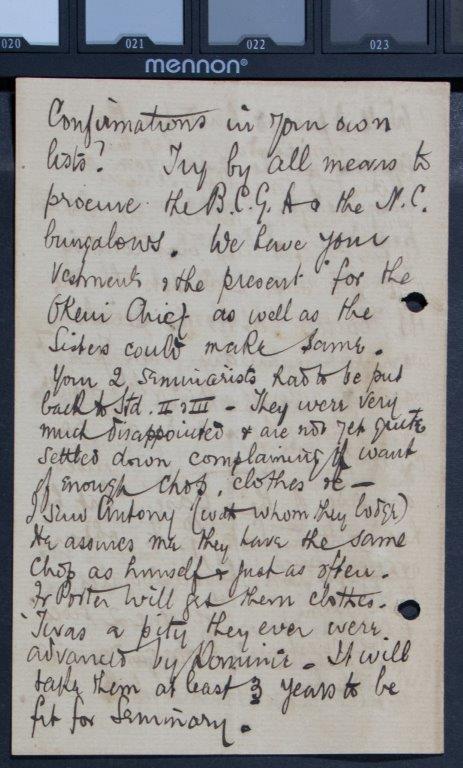 020 021 022 023
mennon®
Confirmations in your own
lists? Try by all means to
procure the B.C.G. A & the N.C.
bungalows. We have your
Vestments & the present for the
Okeni Chief as well as the
Sisters could make same.
Your 2 Seminarists had to be put
back to Std. II & III - They were very
much disappointed & are not yet quite
settled down complaining of want
of enough chop, clothes &c -
I saw Antony (with whom they lodge)
He assures me they have the same
Chop as himself & just as often.
Fr Porter will get them clothes.
'Twas a pity they ever were
advanced by Dominic - It will
take them at least 3 years to be
fit for Seminary.